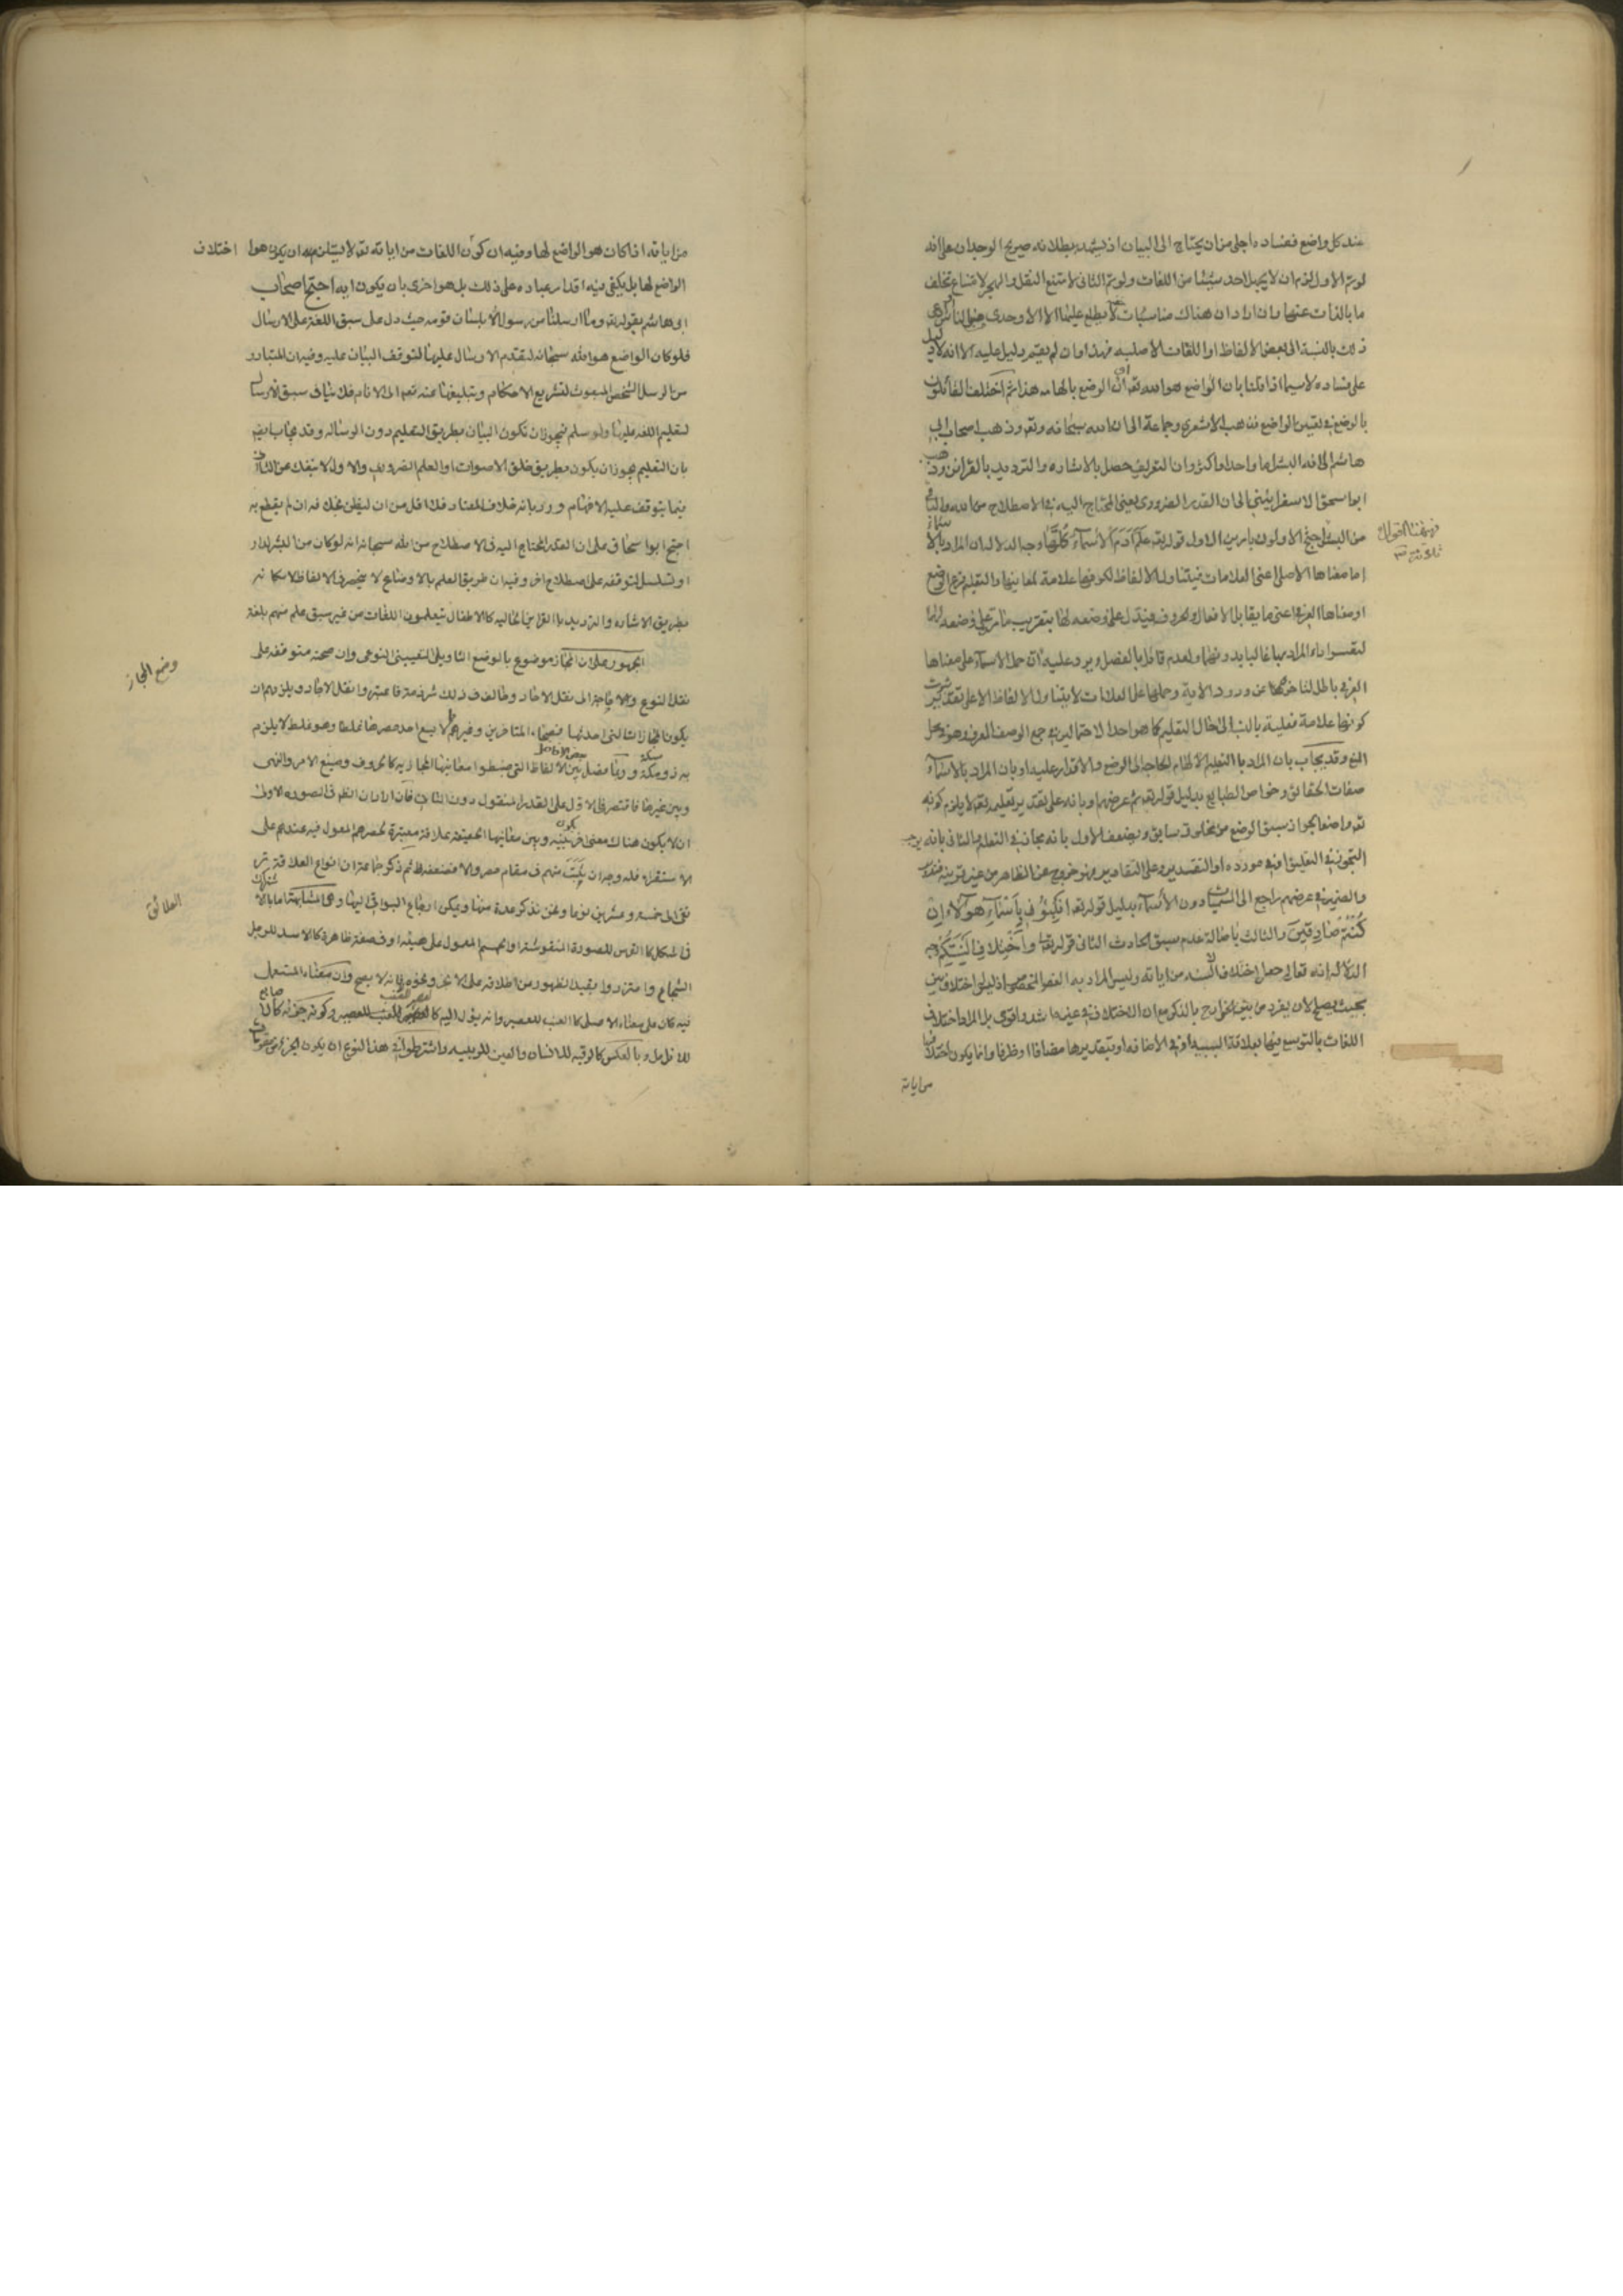 عند كل واضع ففساده اجلى من ان يحتاج الى البيان اذ يشهد ببطلانه صريح الوجدان على انه
لو تم الاول لزم ان لا يجهل احد شيئا من اللغات ولو تم الثاني لامتنع النقل والهجر لامتناع تخلف
ما بالذات عنها وان اراد ان هناك مناسبات لا يطلع عليها الا الاوحدي من الناس
ذلك بالنسبة الى بعض الالفاظ او اللغات الاصلية فهذا وان لم يقم دليل عليه الا انه لا دليل
على فساده لا سيما اذا قلنا بان الواضع هو الله تعالى او ان الوضع بالهامه هذا ثم اختلف القائلون
بالوضع في تعيين الواضع فذهب الاشعري وجماعة الى انه الله سبحانه وتعالى وذهب اصحاب ابي
هاشم الى انه البشر اما واحد او اكثر وان التعريف حصل بالاشارة والترديد بالقرائن وذهب
ابو اسحق الاسفرايني الى ان القدر الضروري يعني المحتاج اليه في الاصطلاح من الله والباقي
من البشر احتج الاولون بامرين الاول قوله تعالى علم آدم الاسماء كلها وجه الدلالة ان المراد بالاسماء
اما معناها الاصلي اعني العلامات فيتناول الالفاظ لكونها علامة لمعانيها والتعليم فرع الوضع
او معناها العرفي اعني ما يقابل الافعال والحروف فيدل على وضعه لها بتقريب ما مر على وضعه
لتعسر اداء المراد بها غالبا بدونهما ولعدم قائل بالفصل ويرد عليه ان حمل الاسماء على معناها
العرفي باطل لتأخره عن ورود الاية وحملها على العلامات لا يتناول الالفاظ الا على تقدير ثبوت
كونها علامة فعلية بالنسبة الى حال التعليم كما هو احد الاحتمالين في جمع الوصف المعرف وهو في محل
المنع وقد يجاب بان المراد بالتعليم الالهام بالحاجة الى الوضع والاقدار عليه او بان المراد بالاسماء
صفات الحقائق وخواص الطبايع بدليل قوله تعالى ثم عرضهم او بانه على تقدير تعليمه تعالى لا يلزم كونه
تعالى واضعا لجواز سبق الوضع من مخلوق سابق ويضعف الاول بانه مجاز في التعليم والثاني بانه يوجب
التجوز في التعليق او في مورده او التقدير وعلى التقادير فهو خروج عن الظاهر من غير قرينة
والضمير في عرضهم راجع الى المسميات دون الاسماء بدليل قوله تعالى انبئوني باسماء هؤلاء ان
كنتم صادقين والثالث باصالة عدم سبق الحادث الثاني قوله تعالى واختلاف السنتكم وجه
الدلالة انه تعالى جعل اختلاف الالسنة من اياته وليس المراد به العضو المخصوص اذ ليس اختلافه بين
بحيث يصلح لان يفرد من بين الجوارح بالذكر مع ان الاختلاف في غيرها اشد واقوى بل المراد اختلاف
اللغات بالتوسع فيها بعلاقة السببية او في الاضافة او بتقديرها مضافا او ظرفا وانما يكون اختلافها
من اياته
فهيهنا اقوال
ثلاثة ٣
من اياته اذا كان هو الواضع لها وفيه ان كون اللغات من اياته تعالى لا يستلزم ان يكون هو اختلاف
الواضع لها بل يكفي فيه اقدار عباده على ذلك بل هو احرى بان يكون اية احتج اصحاب
ابي هاشم بقوله تعالى وما ارسلنا من رسول الا بلسان قومه حيث دل على سبق اللغة على الارسال
فلو كان الواضع هو الله سبحانه لتقدم الارسال عليها لتوقف البيان عليه وفيه ان المتبادر
من الرسل الشخص المبعوث لتشريع الاحكام وتبليغها عنه تعالى الى الانام فلا ينافي سبق الارسال
لتعليم اللغة عليها ولو سلم فيجوز ان تكون البيان بطريق التعليم دون الرسالة وقد يجاب ايضا
بان التعليم يجوز ان يكون بطريق خلق الاصوات او العلم الضروري والاول لا ينفك عن الثاني
فيما يتوقف عليه الافهام ورد بانه خلاف المعتاد فلا اقل من ان ليظن بخلافه ان لم يقطع به
احتج ابو اسحاق على ان القدر المحتاج اليه في الاصطلاح من الله سبحانه انه لو كان من البشر لدار
او تسلسل لتوقفه على اصطلاح اخر وفيه ان طريق العلم بالاوضاع لا ينحصر في الالفاظ لامكانه
بطريق الاشارة والترديد بالقراين الحالية كالاطفال يتعلمون اللغات من غير سبق علم منهم بلغة
الجمهور على ان المجاز موضوع بالوضع التاويلي التعييني النوعي وان صحته متوقفة على
نقل النوع ولا حاجة الى نقل الاحاد وخالف في ذلك شرذمة فاعتبروا نقل الاحاد ويلزمهم ان
يكون المجازات التي احدثها فصحاء المتاخرين وغيرهم لا يسع احد حصرها غلطا وهو غلط لا يلتزم
به ذو مسكة وربما فصل بعض الافاضل بين الالفاظ التي ضبطوا معانيها المجازية كالحروف وصيغ الامر والنهي
وبين غيرها فاقتصر في الاول على القدر المنقول دون الثاني فان اراد ان الظهر في الصورة الاولى
ان لا يكون هناك معنى يكون بينه وبين معانيها الحقيقية علاقة معتبرة لحصرهم المعول فيه عندهم على
الاستقراء فله وجه ان ثبت منهم في مقام حصر والا فضعفه ظ ثم ذكر جماعة ان انواع العلاقة
تنتهي الى خمسة وعشرين نوعا ونحن نذكر عدة منها ويمكن ارجاع البواقي اليها وهي المشابهة اما بالاشتراك
في الشكل كالفرس للصورة المنقوشة او المجسم المعمول على هيئته او في صفة ظاهرة كالاسد للرجل
الشجاع واحترزوا بقيد الظهور من اطلاقه على الابخر ونحوه فانه لا يصح وان معناه المستعمل
فيه كان على معناه الاصلي كالعنب للعصير وانه يؤول اليه كالعصير للعنب وكونه جزئه كالاصابع
للانامل وبالعكس كالرقبة للانسان والعين للربيئة واشترطوا في هذا النوع ان يكون الجزء من مقومات
وضع المجاز
العلائق